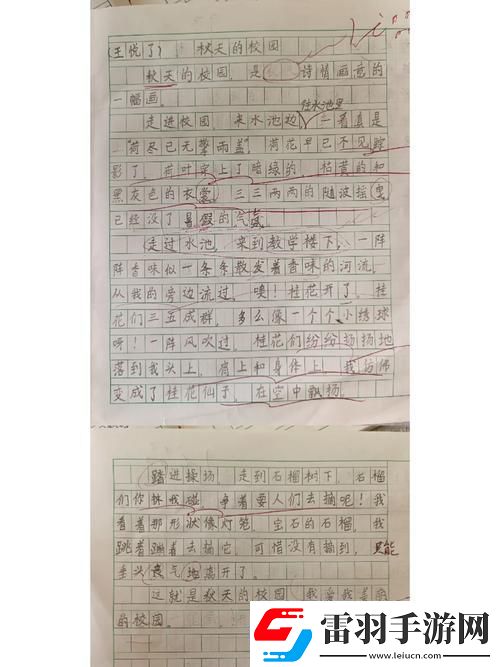 (王悦了) 秋天的校园
秋天的校园，是 诗情画意的
一幅画。
往水池里
走进校园，来水池边，一看真是
“荷尽已无擎雨盖”，荷花早已不见踪
影了，荷叶穿上了暗绿的，枯黄的和
黑灰色的衣裳，三三两两的随波摇曳
已经没了暑假的气氛。
走过水池，来到教学楼下，一阵
阵香味似一条条散发着香味的河流，
从我的旁边流过。噢！桂花开了，桂
花们三五成群，多么像一个个小绣球
呀！一阵风吹过，桂花们纷纷扬扬地
落到我头上，肩上和身体上，我仿佛
变成了桂花仙子，在空中飘扬。
踏进操场，走到石榴树下，石榴
们你挤我碰，争着要人们去摘呢！我
看着那形状像灯笼，宝石的石榴，我
跳着蹦着去摘它，可惜没有摘到，只能
垂头丧气地离开了。
这就是秋天的校园，我爱我美丽
的校园。
雷羽手游网
www.leiucn.com